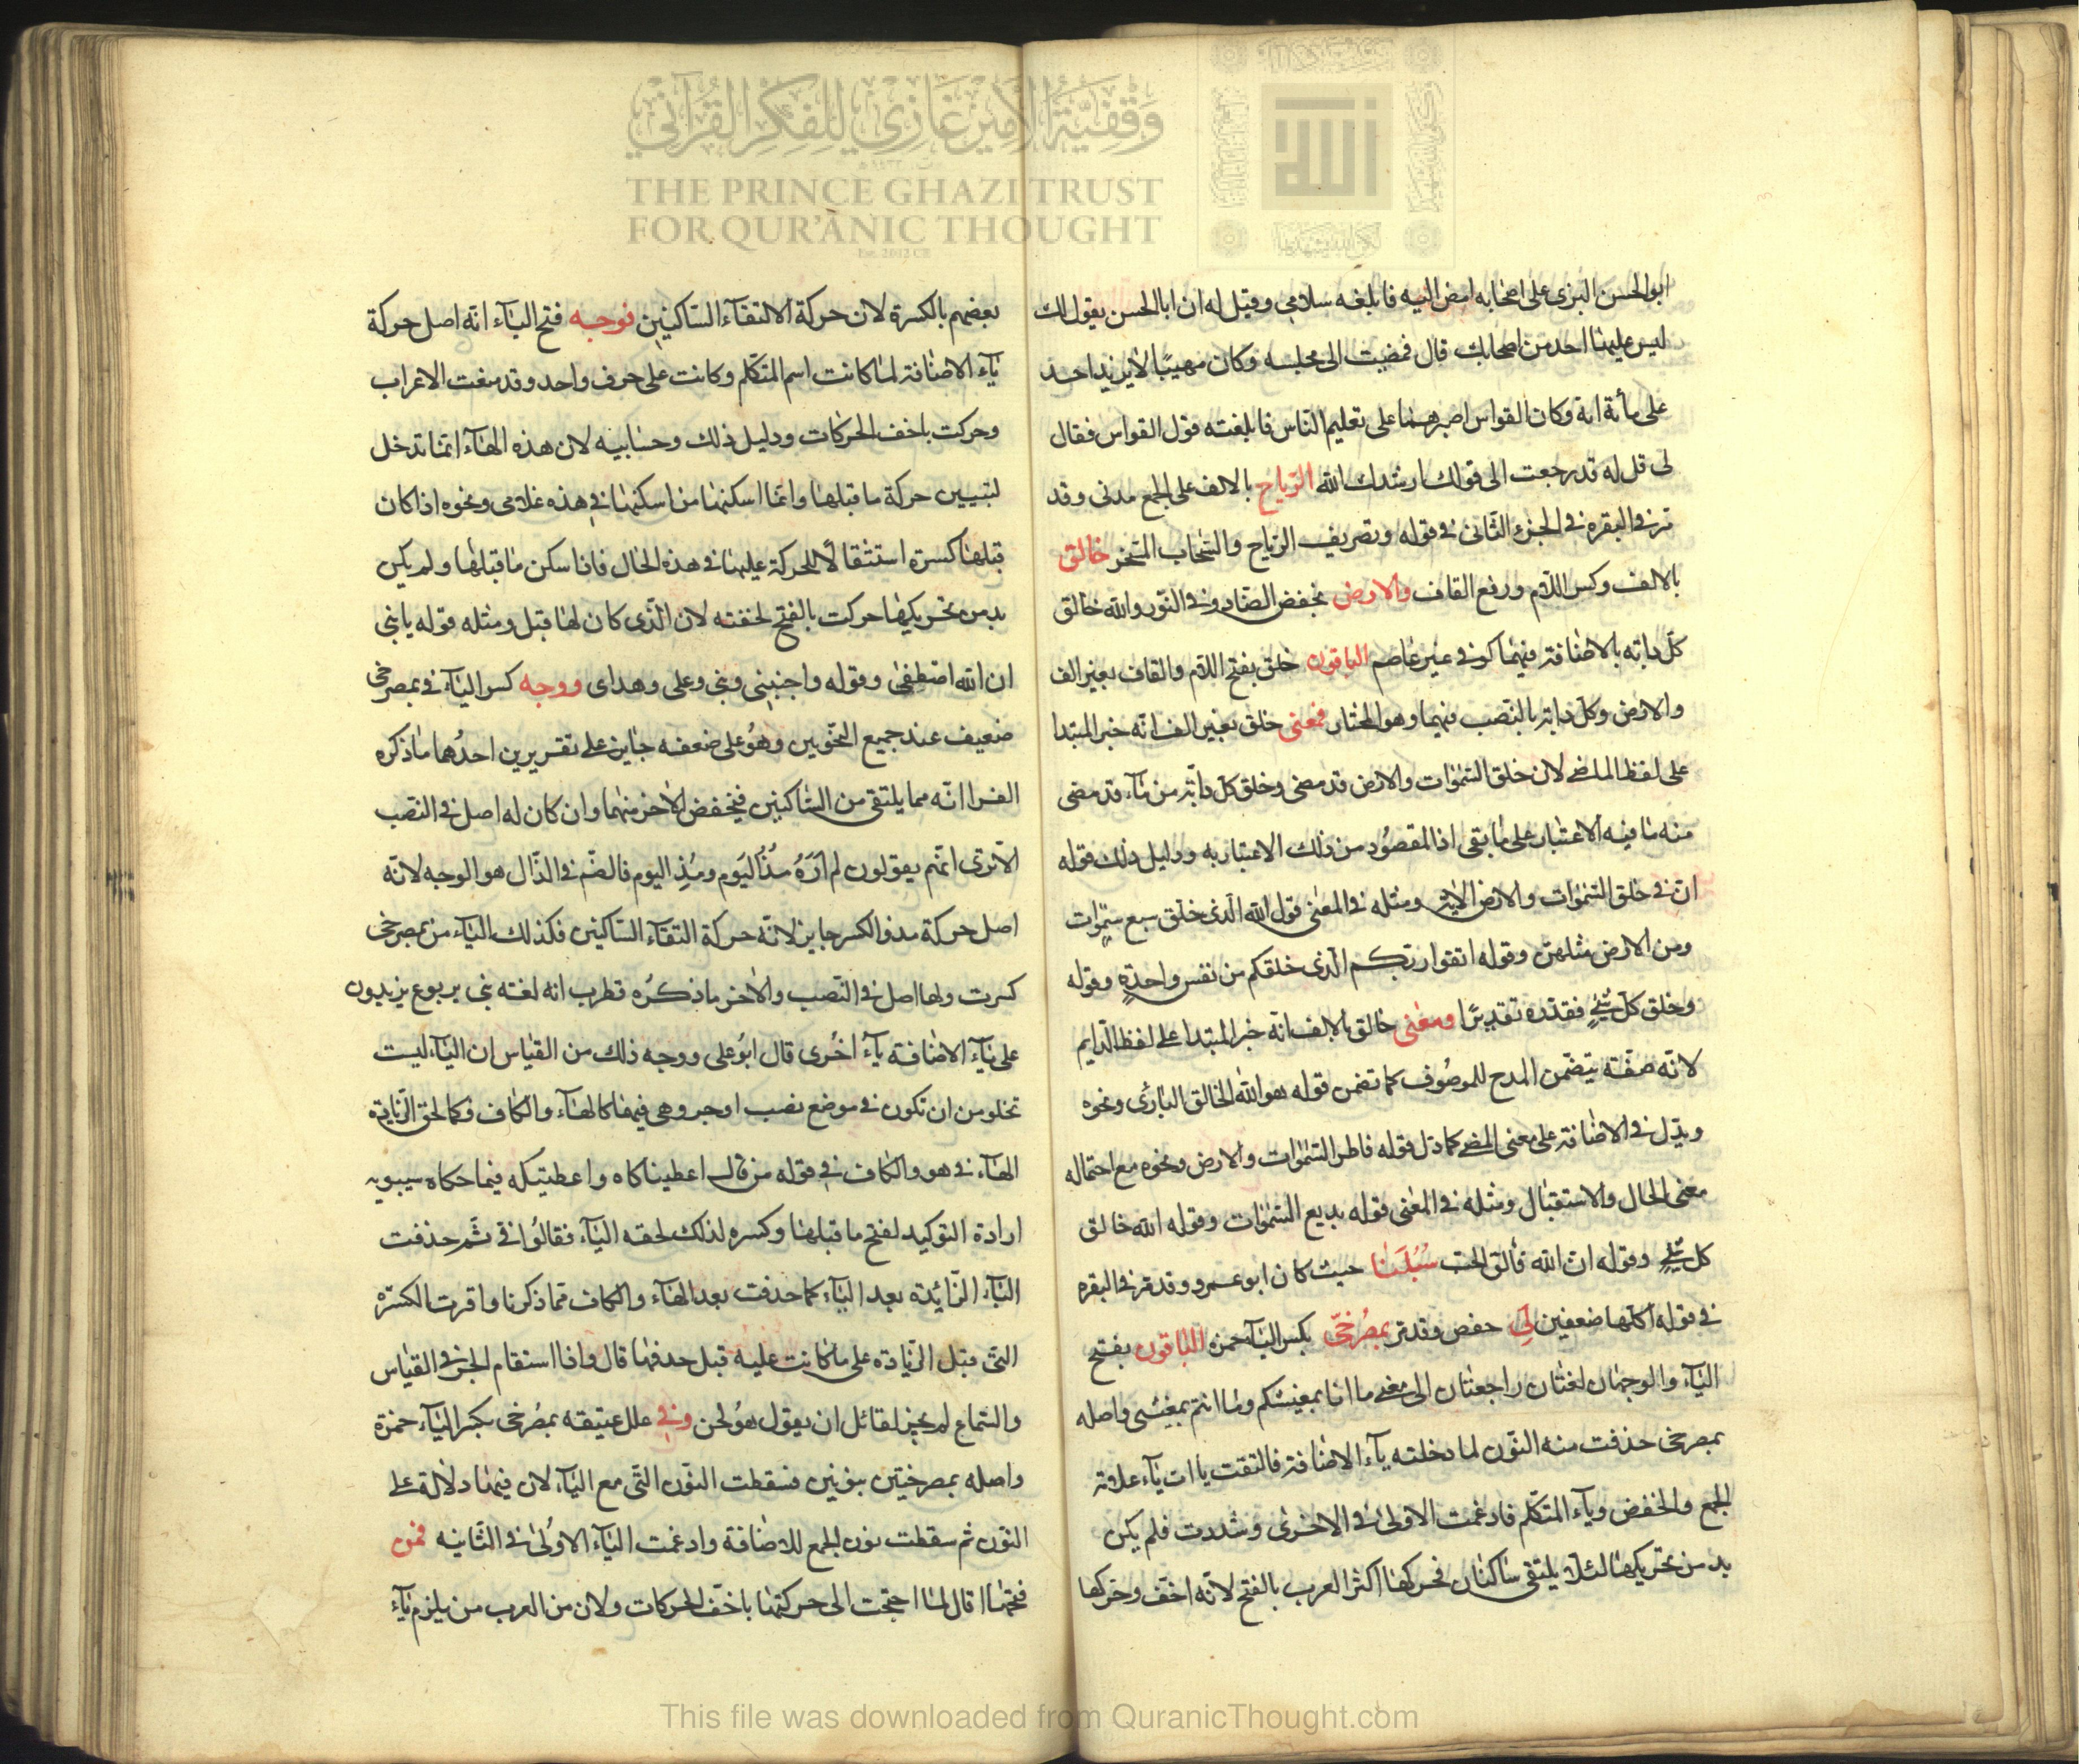 وَقْفِيَّةُ الأَمِيرْ غَازِي لِلْفِكْرِ القُرْآنِي
THE PRINCE GHAZI TRUST
FOR QUR'ĀNIC THOUGHT
Est. 2012 CE
ابو الحسن البزى على اصحابه امض اليه فابلغه سلامى وقيل له ان ابا الحسن يقول لك
ليس علينا احد من اصحابك قال فمضيت الى مجلسه وكان مهيبًا لا يزيد احد
على مأة اية وكان القواس اصبرهما على تعليم الناس فابلغته قول القواس فقال
لى قل له قد رجعت الى قولك ارشدك الله الرّياح بالالف على الجمع مدنى وقد
مر فى البقره فى الجزء الثانى فى قوله وتصريف الرياح والسحاب المسخر خالق
بالالف وكسر اللام ورفع القاف والارض بخفض الضاد وفى النّور والله خالق
كلّ دابّه بالاضافة فيهما كوفى غير عاصم الباقون خلق بفتح اللام والقاف بغير الف
والارض وكل دابة بالنصب فيهما وهو المختار فمعنى خلق بغير الف انّه خبر المبتدا
على لفظ الماضى لان خلق السّموات والارض قد مضى وخلق كل دابّة من ماء قد مضى
منه ما فيه الاعتبار على ما بقى اذ المقصود من ذلك الاعتبار به ودليل ذلك قوله
ان فى خلق السّموات والارض الاية ومثله فى المعنى قول الله الّذى خلق سبع سموات
ومن الارض مثلهن وقوله اتقوا ربكم الّذى خلقكم من نفس واحدة وقوله
وخلق كلّ شئ فقدره تقديرًا ومعنى خالق بالالف انّه خبر المبتدا على لفظ الدّايم
لانّه صفة يتضمّن المدح للموصوف كما تضمن قوله هو الله الخالق البارئ ونحوه
ويدّل فى الاضافة على معنى المضى كما دل قوله فاطر السّموات والارض ونحوه مع احتماله
معنى الحال والاستقبال ومثله فى المعنى قوله بديع السّموات وقوله الله خالق
كل شئ وقوله ان الله فالق الحب سُبُلَنا حيث كان ابو عمرو وقد مر فى البقره
فى قوله اكلها ضعفين لى حفص وقد مر بمصرخىّ بكسر الياء حمزه الباقون بفتح
الياء والوجهان لغتان راجعتان الى معنى ما انا بمغيثكم وما انتم بمغيثى واصله
بمصرخى حذفت منه النّون لما دخلته ياء الاضافة فالتقت يا ات ياء علامة
الجمع والخفض وياء المتكلم فادغمت الاولى فى الاخرى وشددت فلم يكن
بد من تحريكها لئلّا يلتقى ساكنان فحركها اكثر العرب بالفتح لانّه اخف وحركها
بعضهم بالكسرة لان حركة الالتقاء الساكنين فوجه فتح الياء انّه اصل حركة
ياء الاضافة لما كانت اسم المتكلم وكانت على حرف واحد وقد منعت الاعراب
وحركت باخف الحركات ودليل ذلك وحسابيه لان هذه الهاء انّما تدخل
لتبيين حركة ما قبلها وانما اسكنها من اسكنها فى هذه غلامى ونحوه اذا كان
قبلها كسرة استثقالًا للحركة عليها فى هذه الحال فاذا سكن ما قبلها ولم يكن
بد من تحريكها حركت بالفتح لخفته لان الّذى كان لها قبل ومثله قوله يا بنى
ان الله اصطفى وقوله واجنبنى وبنى وعلى وهداى ووجه كسر الياء فى بمصرخى
ضعيف عند جميع النحويين وهو على ضعفه جاين على تقريرين احدهما ما ذكره
الفرا انّه مما يلتقى من الساكنين فيخفض الاخر منهما وان كان له اصل فى النصب
الا ترى انهم يقولون لم اَرَهُ مُذُ اليَوم ومُذِ اليوم فالضم فى الذّال هو الوجه لانّه
اصل حركة مذ والكسر جايز لانّه حركة التقاء الساكنين فكذلك الياء من بمصرخى
كسرت ولها اصل فى النصب والاخر ما ذكرُه قطرب انه لغته بنى يربوع يزيدون
على ياء الاضافة ياءً اخرى قال ابو على ووجه ذلك من القياس ان الياء ليست
تخلو من ان تكون فى موضع نصب او جر وهى فيهما كالهاء والكاف فكما لحق الزيادة
الهاء فى هو والكاف فى قوله من قال اعطيناكاه واعطيتكه فيما حكاه سيبويه
ارادة التوكيد لفتح ما قبلها وكسره لذلك لحقه الياء فقالوا فى ثمّ حذفت
الياء الزّائدة بعد الياء كما حذفت بعد الهاء والكاف مما ذكرنا واقرت الكسره
التى قبل الزّيادة على ما كانت عليه قبل حذفها قال واذا استقام الجر فى القياس
والسّماع لم يجز لقائل ان يقول هو لحن وفى علل عتيقه بمُصرخى بكسر الياء حمزة
واصله بمصرخيين بنونين فسقطت النّون الّتى مع الياء لان فيها دلالة على
النّون ثم سقطت نون الجمع للاضافة وادغمت الياء الاولى فى الثانيه فمن
فتحها قال لما احتجت الى حركتها باخف الحركات ولان من العرب من يلزم ياء
This file was downloaded from QuranicThought.com